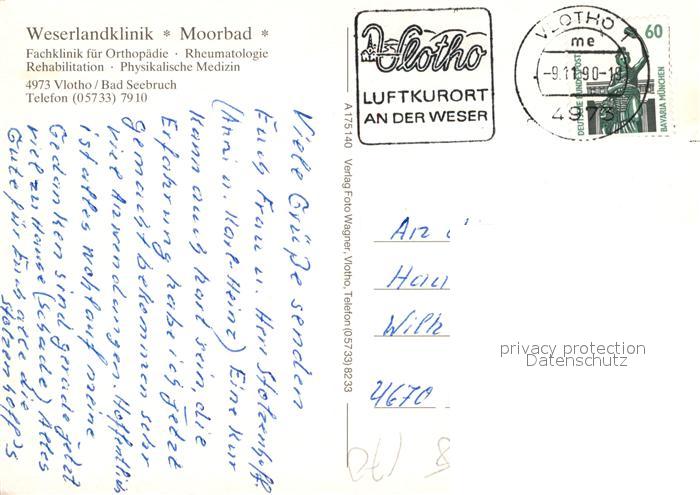 Weserlandklinik * Moorbad *
Fachklinik für Orthopädie · Rheumatologie
Rehabilitation · Physikalische Medizin
4973 Vlotho / Bad Seebruch
Telefon (05733) 7910
Viele Grüße senden
Euch Frau u. Herr Stolzenhoff.
(Anni u. Karl-Heinz) Eine Kur
kann auch hart sein, die
Erfahrung habe ich jetzt
gemacht bekommen sehr
viel Anwendungen. Hoffentlich
ist alles wohlauf meine
Gedanken sind gerade jetzt
viel zu Hause (Schade) Alles
Gute für Euch alle die
Stolzenhoff's
A 175140 Verlag Foto Wagner, Vlotho, Telefon (05733) 8233
Vlotho
LUFTKURORT
AN DER WESER
VLOTHO
me
-9.11.90-18
4973
60
DEUTSCHE BUNDESPOST
BAVARIA MÜNCHEN
Wilh
4670
privacy protection
Datenschutz